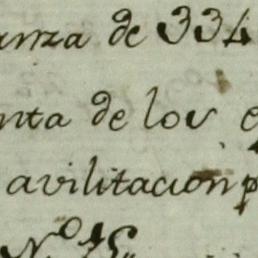 anza de 334
nta de los e
avilitacion p
Nº 15